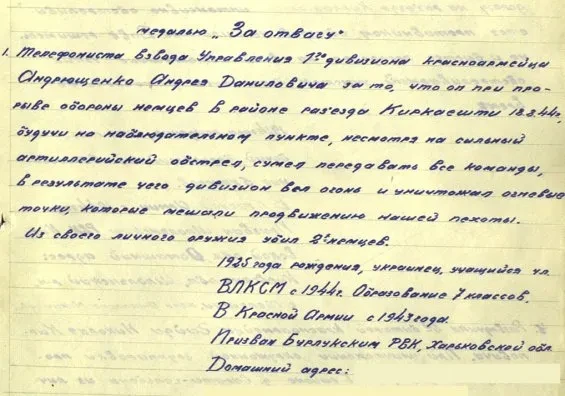 медалью „За отвагу"
1. Телефониста взвода Управления 1го дивизиона красноармейца
Андрющенко Андрея Даниловича за то, что он при про-
рыве обороны немцев в районе раз'езда Киркаешти 18.8.44г,
будучи на наблюдательном пункте, несмотря на сильный
артиллерийский обстрел, сумел передавать все команды,
в результате чего дивизион вел огонь и уничтожал огневые
точки, которые мешали продвижению нашей пехоты.
Из своего личного оружия убил 2х немцев.
1925 года рождения, украинец, учащийся чл.
ВЛКСМ с 1944г. Образование 7 классов.
В Красной Армии с 1943 года.
Призван Бурлукским РВК, Харьковской обл.
Домашний адрес: